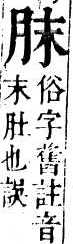 俗字舊註音
末肚也誤